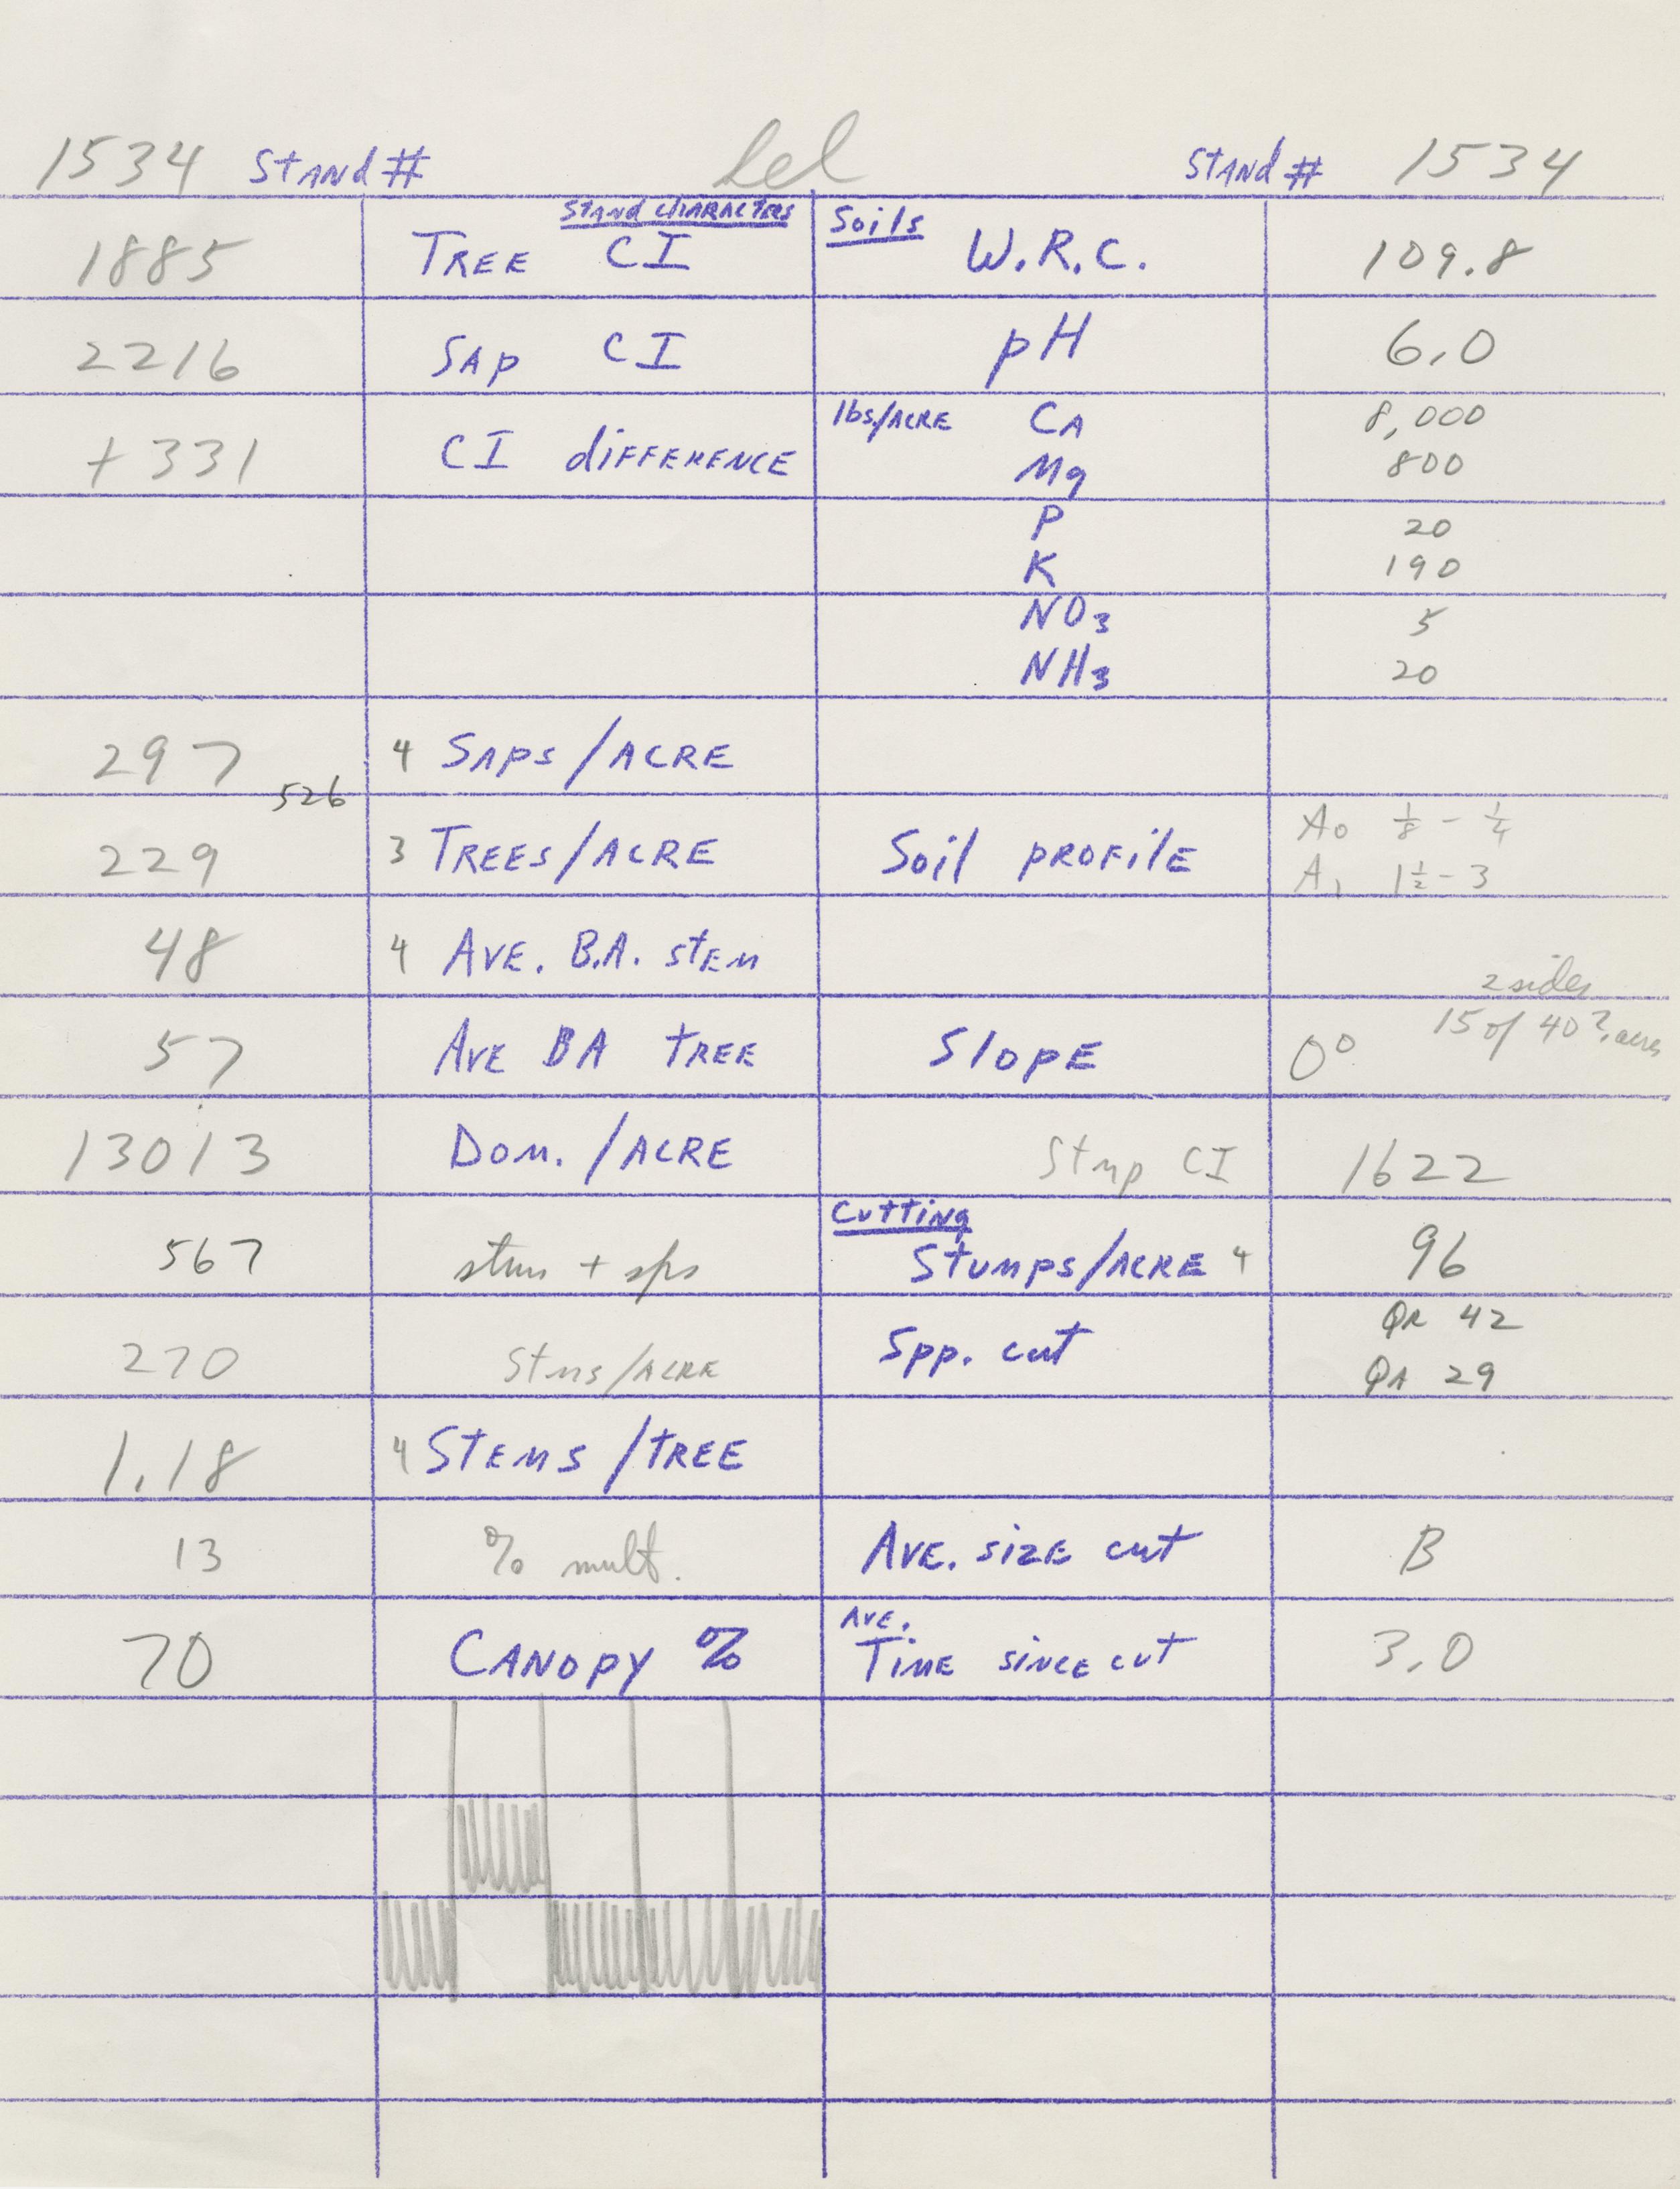 1534 Stand # Lel Stand # 1534
Stand characters Soils
1885 Tree CI W.R.C. 109.8
2216 Sap CI pH 6.0
lbs./Acre Ca 8,000
+331 CI difference Mg 800
P 20
K 190
NO3 5
NH3 20
297 4 Saps/Acre
526
229 3 Trees/Acre Soil profile A0 1/8 - 1/4
A1 1 1/2 - 3
48 4 Ave. B.A. stem
2 sides
57 Ave BA tree Slope 0° 15 of 40? acres
13013 Dom./Acre Stmp CI 1622
Cutting
567 stms + sps Stumps/Acre 4 96
QR 42
270 Stms/Acre Spp. cut QA 29
1.18 4 Stems/tree
13 % mult. Ave. size cut B
Ave.
70 Canopy % Time since cut 3.0